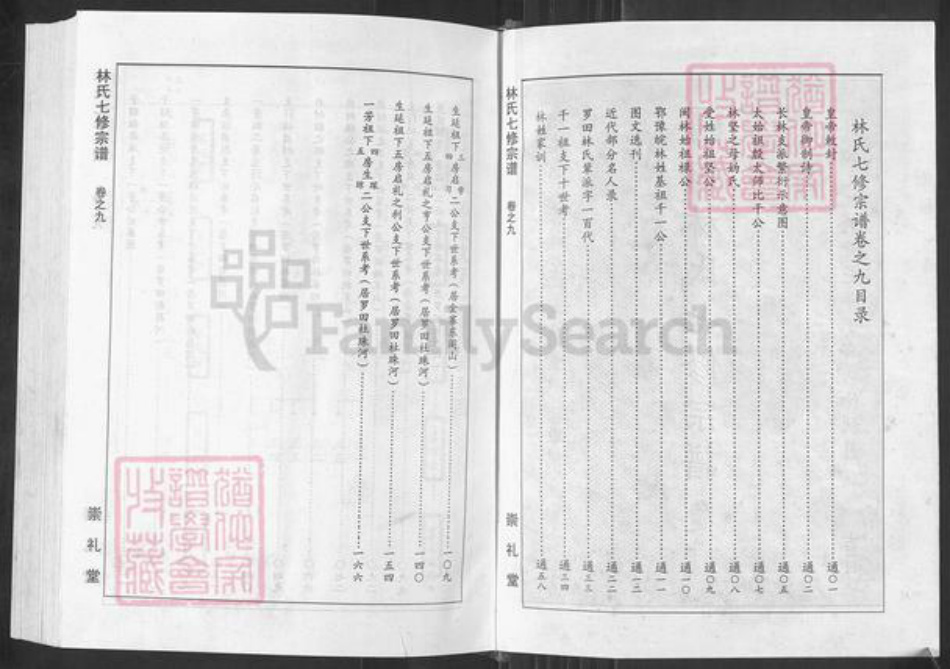 林氏七修宗谱卷之九目录
皇帝敕封 通〇一
皇帝御制诗 通〇二
长林支派繁衍示意图 通〇五
太始祖殷太师比干公 通〇七
林坚之母妫氏 通〇八
受姓始祖坚公 通〇九
闽林始祖禄公 通一〇
鄂豫皖林姓基祖千一公 通一一
图文选刊 通一二
近代部分名人录 通二二
罗田林氏辈派字一百代 通三三
千一祖支下十世考 通三四
林姓家训 通五八
林氏七修宗谱 卷之九
崇礼堂
生延祖下三四房启 二公支下世系考(居金寨东高山) 一〇九
生延祖下五房启礼之亨公支下世系考(居罗田社珠河) 一四〇
生延祖下五房启礼之利公支下世系考(居罗田社珠河) 一五四
一芳祖下四五房生 二公支下世系考(居罗田社珠河) 一六六
林氏七修宗谱 卷之九
崇礼堂
FamilySearch